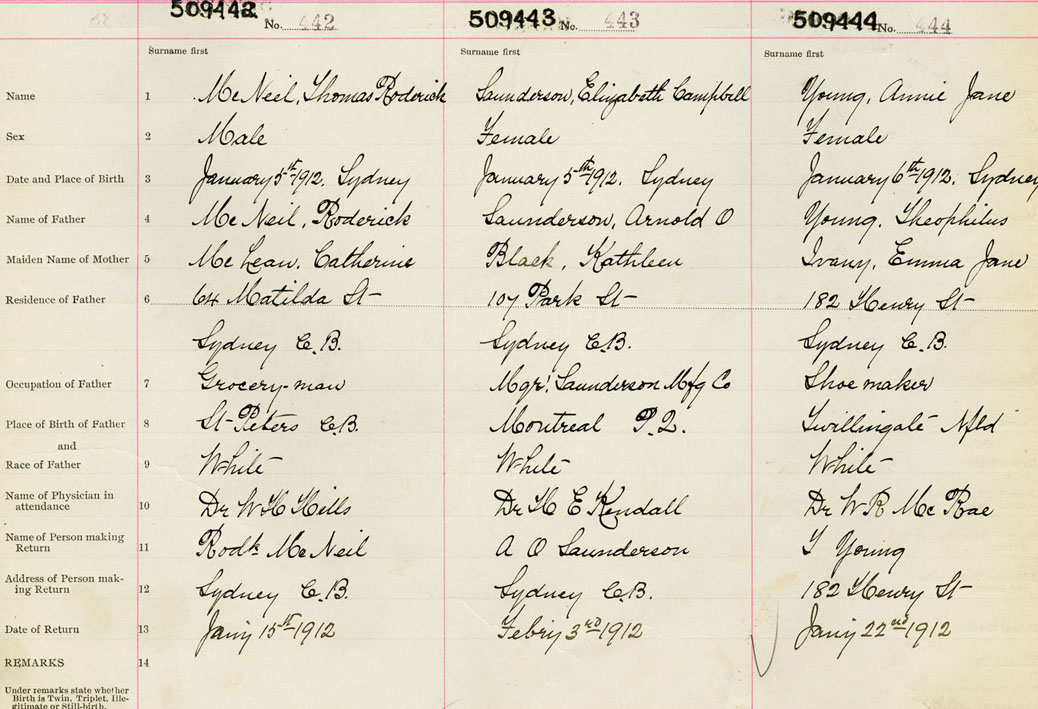 509442 509443 509444
No. 442 No. 443 No. 444
Surname first Surname first Surname first
Name 1 McNeil, Thomas Roderick Saunderson, Elizabeth Campbell Young, Annie Jane
Sex 2 Male Female Female
Date and Place of Birth 3 January 5th 1912. Sydney January 5th 1912. Sydney January 6th 1912. Sydney
Name of Father 4 McNeil, Roderick Saunderson, Arnold O Young, Theophilus
Maiden Name of Mother 5 McLean, Catherine Black, Kathleen Ivany, Emma Jane
Residence of Father 6 64 Matilda St 107 Park St 182 Henry St
Sydney C.B. Sydney C.B. Sydney C.B.
Occupation of Father 7 Grocery-man Mgr. Saunderson Mfg Co Shoemaker
Place of Birth of Father 8 St Peters C.B. Montreal P.Q. Twillingate Nfld
and
Race of Father 9 White White White
Name of Physician in attendance 10 Dr W H Hills Dr H E Kendall Dr W R McRae
Name of Person making Return 11 Rodk McNeil A O Saunderson T Young
Address of Person mak-ing Return 12 Sydney C.B. Sydney C.B. 182 Henry St
Date of Return 13 Jany 15th 1912 Febry 3rd 1912 Jany 22nd 1912
REMARKS 14
Under remarks state whether
Birth is Twin, Triplet, Ille-
gitimate or Still-birth.